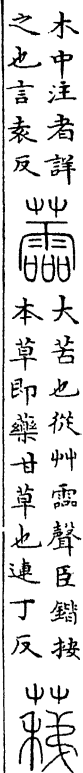 木中注者詳
之也言袁反
蘦
大苦也從艸霝聲臣鍇按
本草即藥甘草也連丁反
蕛